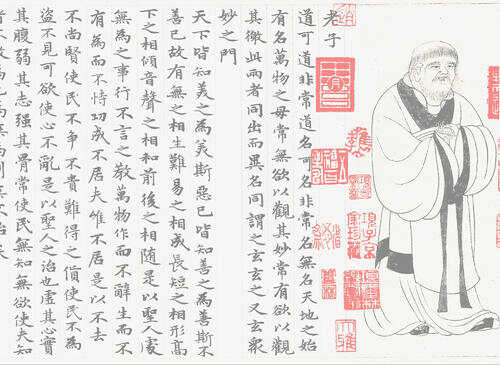 老子
道可道非常道名可名非常名無名天地之始
有名萬物之母常無欲以觀其妙常有欲以觀
其徼此兩者同出而異名同謂之玄玄之又玄衆
妙之門
天下皆知美之為美斯惡已皆知善之為善斯不
善已故有無之相生難易之相成長短之相形高
下之相傾音聲之相和前後之相隨是以聖人處
無為之事行不言之教萬物作而不辭生而不
有為而不恃功成不居夫惟不居是以不去
不尚賢使民不爭不貴難得之貨使民不為
盜不見可欲使心不亂是以聖人之治也虛其心實
其腹弱其志强其骨常使民無知無欲使夫知
項子京家珍藏